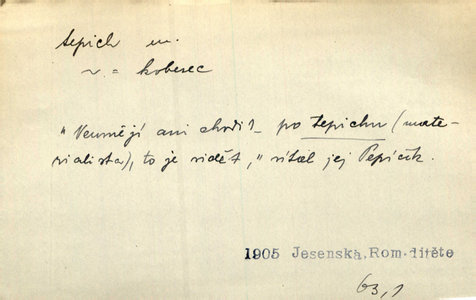 tepich m.
~ = koberec
"Neumějí ani chodit po tepichu (mate-
rialista), to je vidět," vítal jej Pepíček.
1905 Jesenská, Rom. dítěte
63,1